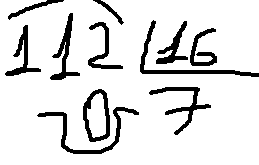 112 16
0 7